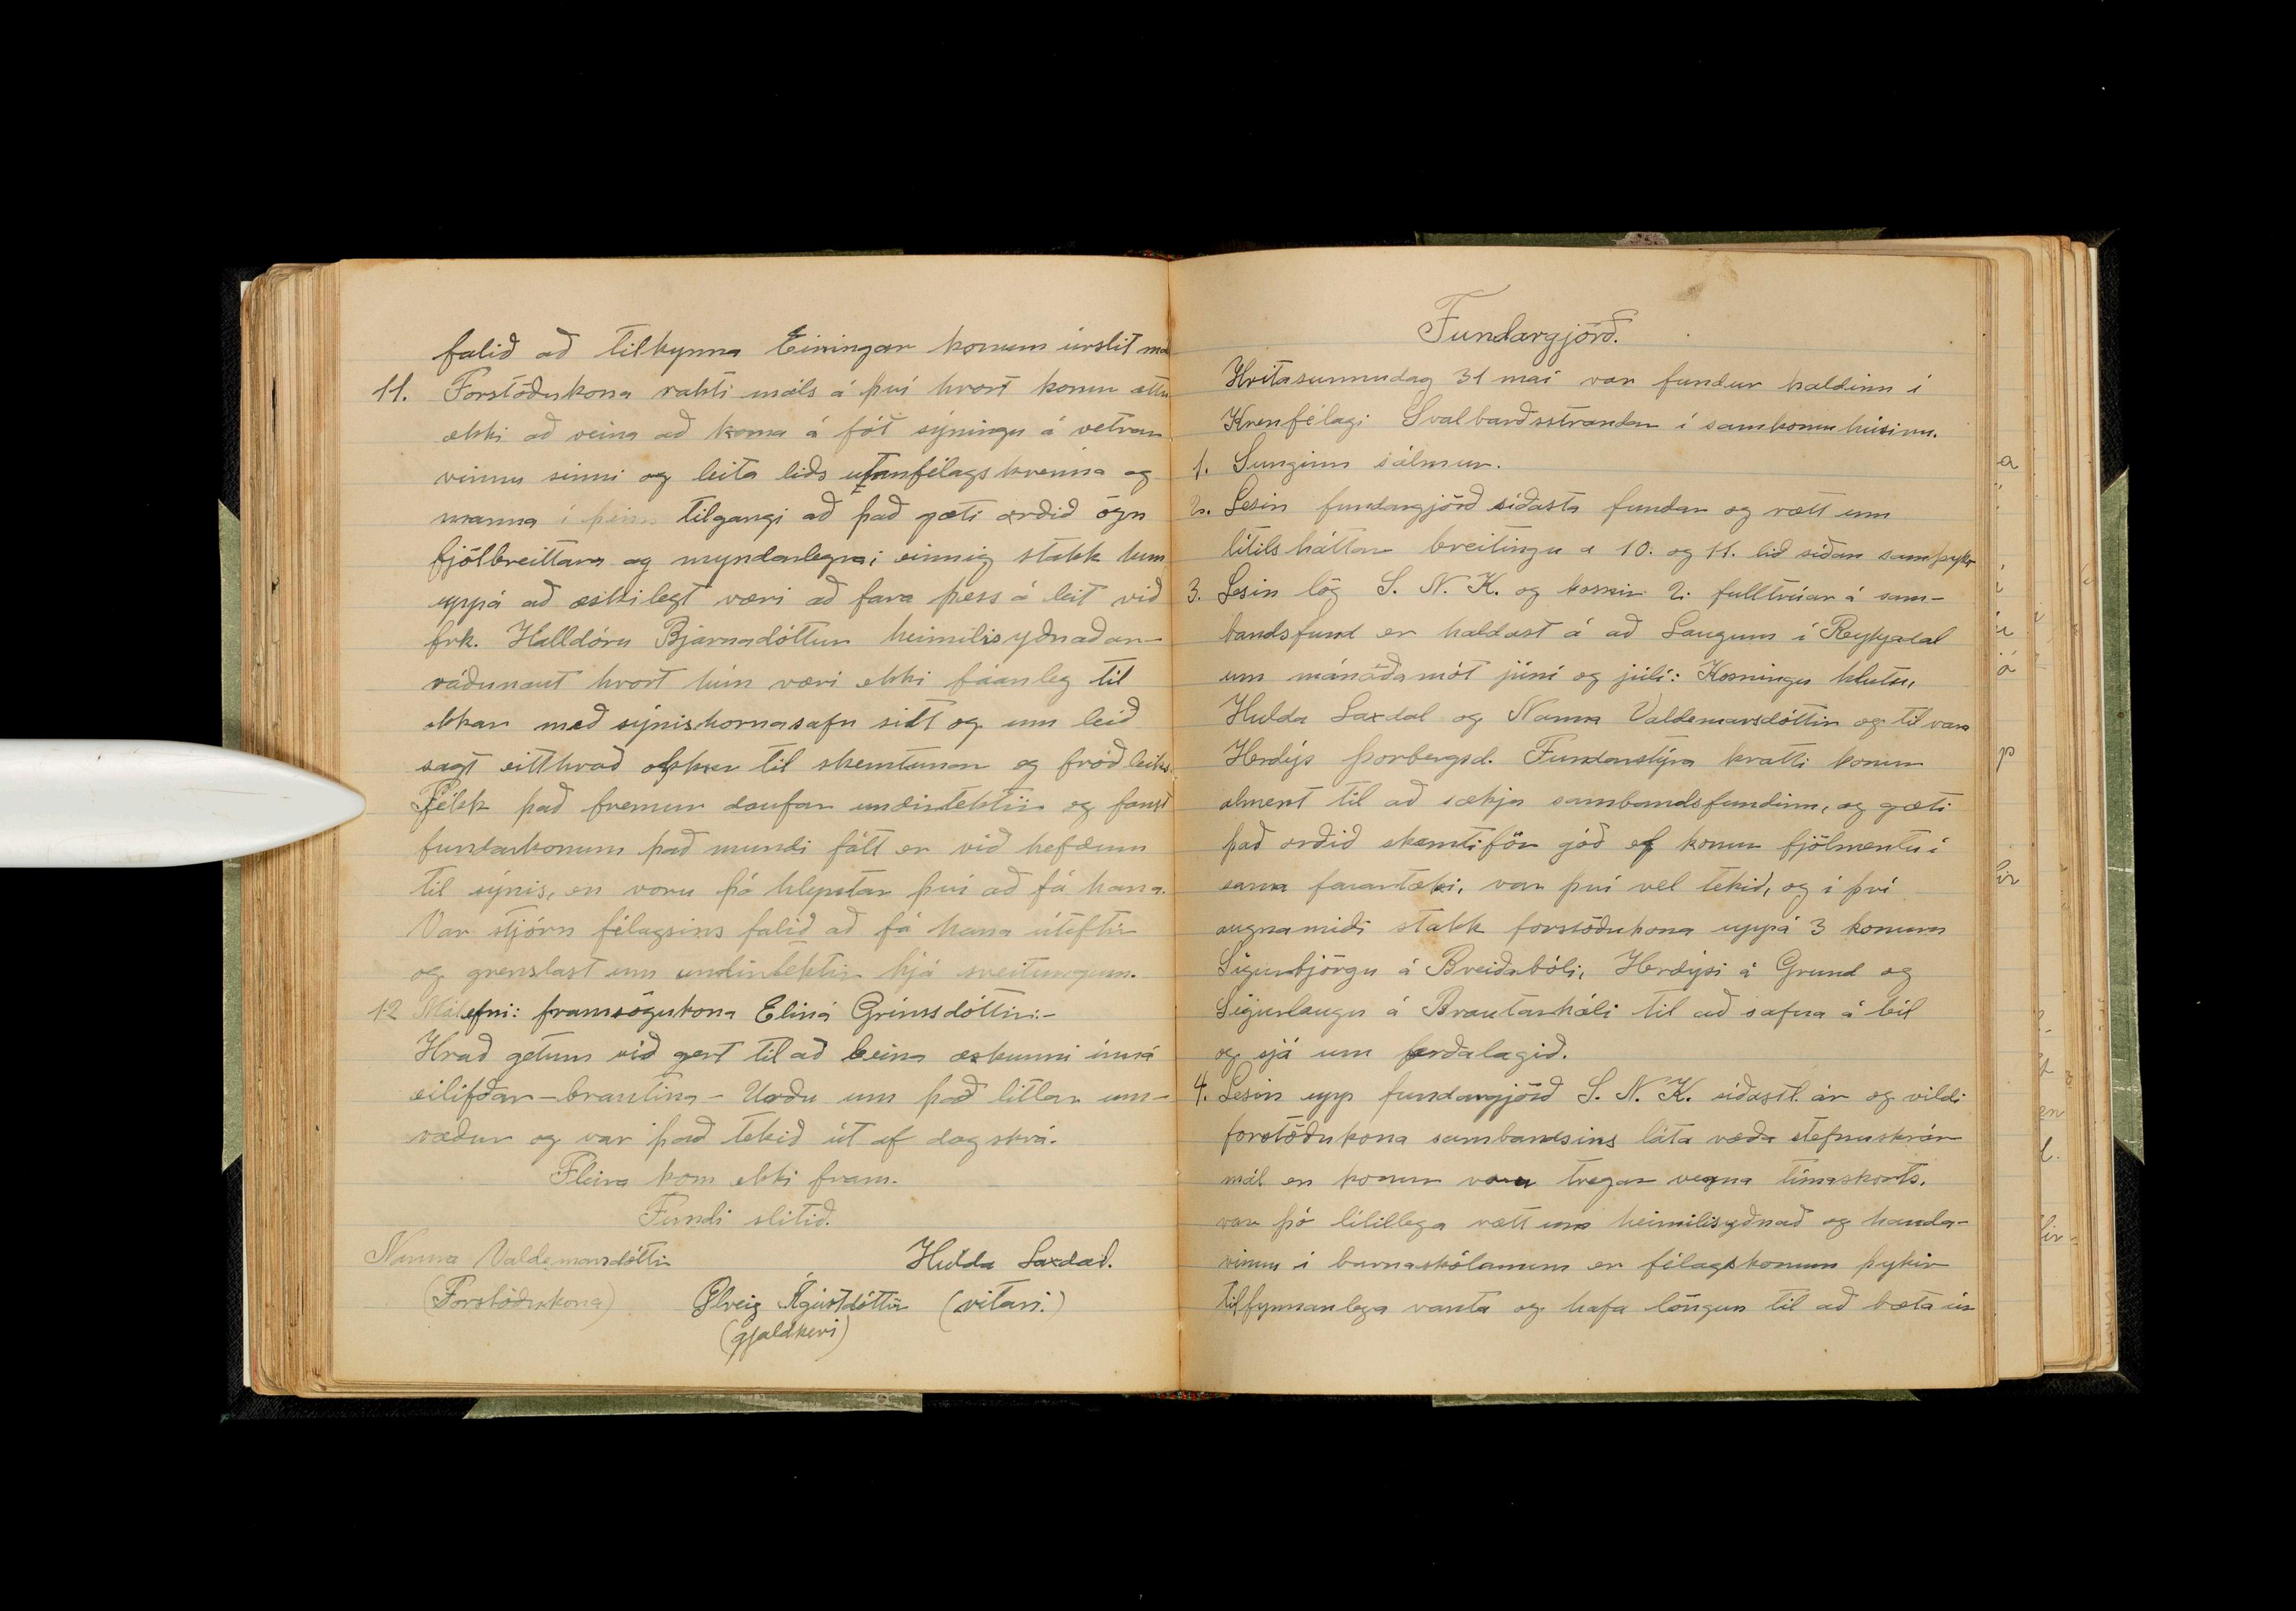 falið að tilkynna Einingar konum úrslit má
11. Forstöðukona vakti máls á því hvort konur ættu
ekki að reina að koma á fót sýningu á vetrar
vinnu sinni og leita liðs utanfélags kvenna og
manna í þeim tilgangi að það gæti orðið ögn
fjölbreittara og myndarlegra; einnig stakk hún
uppá að æskilegt væri að fara þess á leit við
frk. Halldóru Bjarnadóttur heimilisyðnaðar-
ráðunaut hvort hún væri ekki fáanleg til
okkar með sýnishornasafn sitt og um leið
sagt eitthvað okkur til skemtunar og fróðleiks
Fékk það fremur daufar undirtektir og fanst
fundarkonum það mundi fátt er við hefðum
til sýnis, en voru þó hlyntar því að fá hana.
Var stjórn félagsins falið að fá hana úteftir
og grenslast um undirtektir hjá sveitungum.
12 Málefni: framsögukona Elína Grímsdóttir:-
Hvað getum við gert til að beina æskunni inná
eilífðar-brautina - Urðu um það litlar um-
ræður og var það tekið út af dagskrá.
Fleira kom ekki fram.
Fundi slitið.
Nanna Valdemarsdóttir Hulda Laxdal.
(Forstöðukona) Ágústdóttir (ritari.)
(gjaldkeri)
Fundargjörð.
Hvítasunnudag 31 maí var fundur haldinn í
Kvenfélagi Svalbarðsstrandar í samkomuhúsinu.
1. Sunginn sálmur.
2. Lesin fundargjörð síðasta fundar og rætt um
lítils háttar breitingu a 10. og 11. lið síðan samþykt
3. Lesin lög S. N. K. og kosnir 2. fulltrúar á sam-
bandsfund er haldast á að Laugum í Reykjadal
um mánaðamót júní og júlí: Kosningu hlutu,
Hulda Laxdal og Nanna Valdemarsdóttir og til vara
Herdýs Þorbergsd. Fundarstýra hvatti konur
alment til að sækja sambandsfundinn, og gæti
það orðið skemtiför góð ef konur fjölmentu í
sama farartæki, var því vel tekið, og í því
augnamiði stakk forstöðukona uppá 3 konum
Sigurbjörgu á Breiðabóli, Herdýsi á Grund og
Sigurlaugu á Brautarhóli til að safna á bíl
og sjá um ferðalagið.
4. Lesin upp fundargjörð S. N. K. síðastl. ár og vildi
forstöðukona sambansins láta ræða stefnuskrár
mál en konur voru tregar vegna tímaskorts.
var þó lítillega rætt um heimilisyðnað og handa-
vinnu í barnaskólanum er félagskonum þykir
tilfynnanlega vanta og hafa löngun til að bæta úr